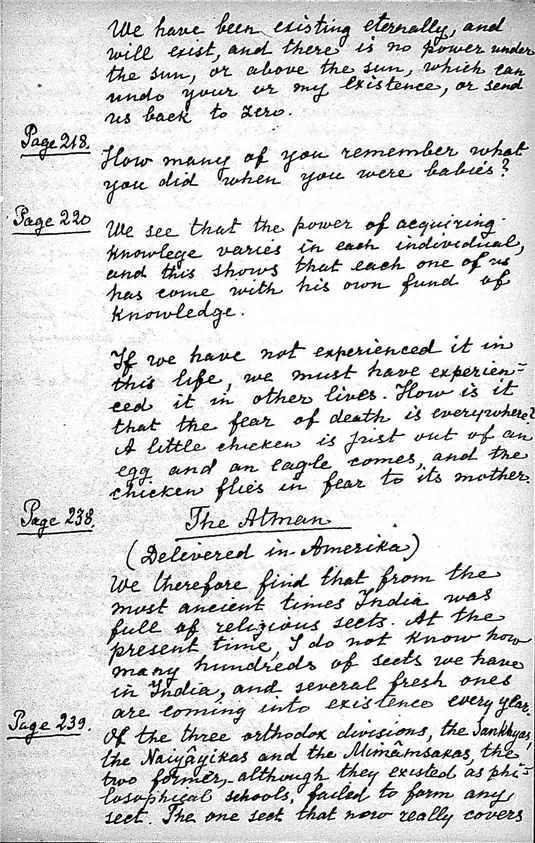 We have been existing eternally, and
will exist, and there is no power under
the sun, or above the sun, which can
undo your or my existence, or send
us back to zero.
Page 218.
How many of you remember what
you did when you were babies?
Page 220
We see that the power of acquiring
knowlege varies in each individual,
and this shows that each one of us
has come with his own fund of
knowledge.
If we have not experienced it in
this life, we must have experien=
ced it in other lives. How is it
that the fear of death is everywhere?
A little chicken is just out of an
egg and an eagle comes, and the
chicken flies in fear to its mother.
Page 238.
The Atman
(Delivered in Amerika)
We therefore find that from the
most ancient times India was
full of religious sects. At the
present time, I do not know how
many hundreds of sects we have
in India, and several fresh ones
are coming into existence every year.
Page 239.
Of the three orthodox divisions, the Sankhyas,
the Naiyâyikas and the Mimâmsakas, the
two former, although they existed as phi=
losophical schools, failed to form any
sect. The one sect that now really covers